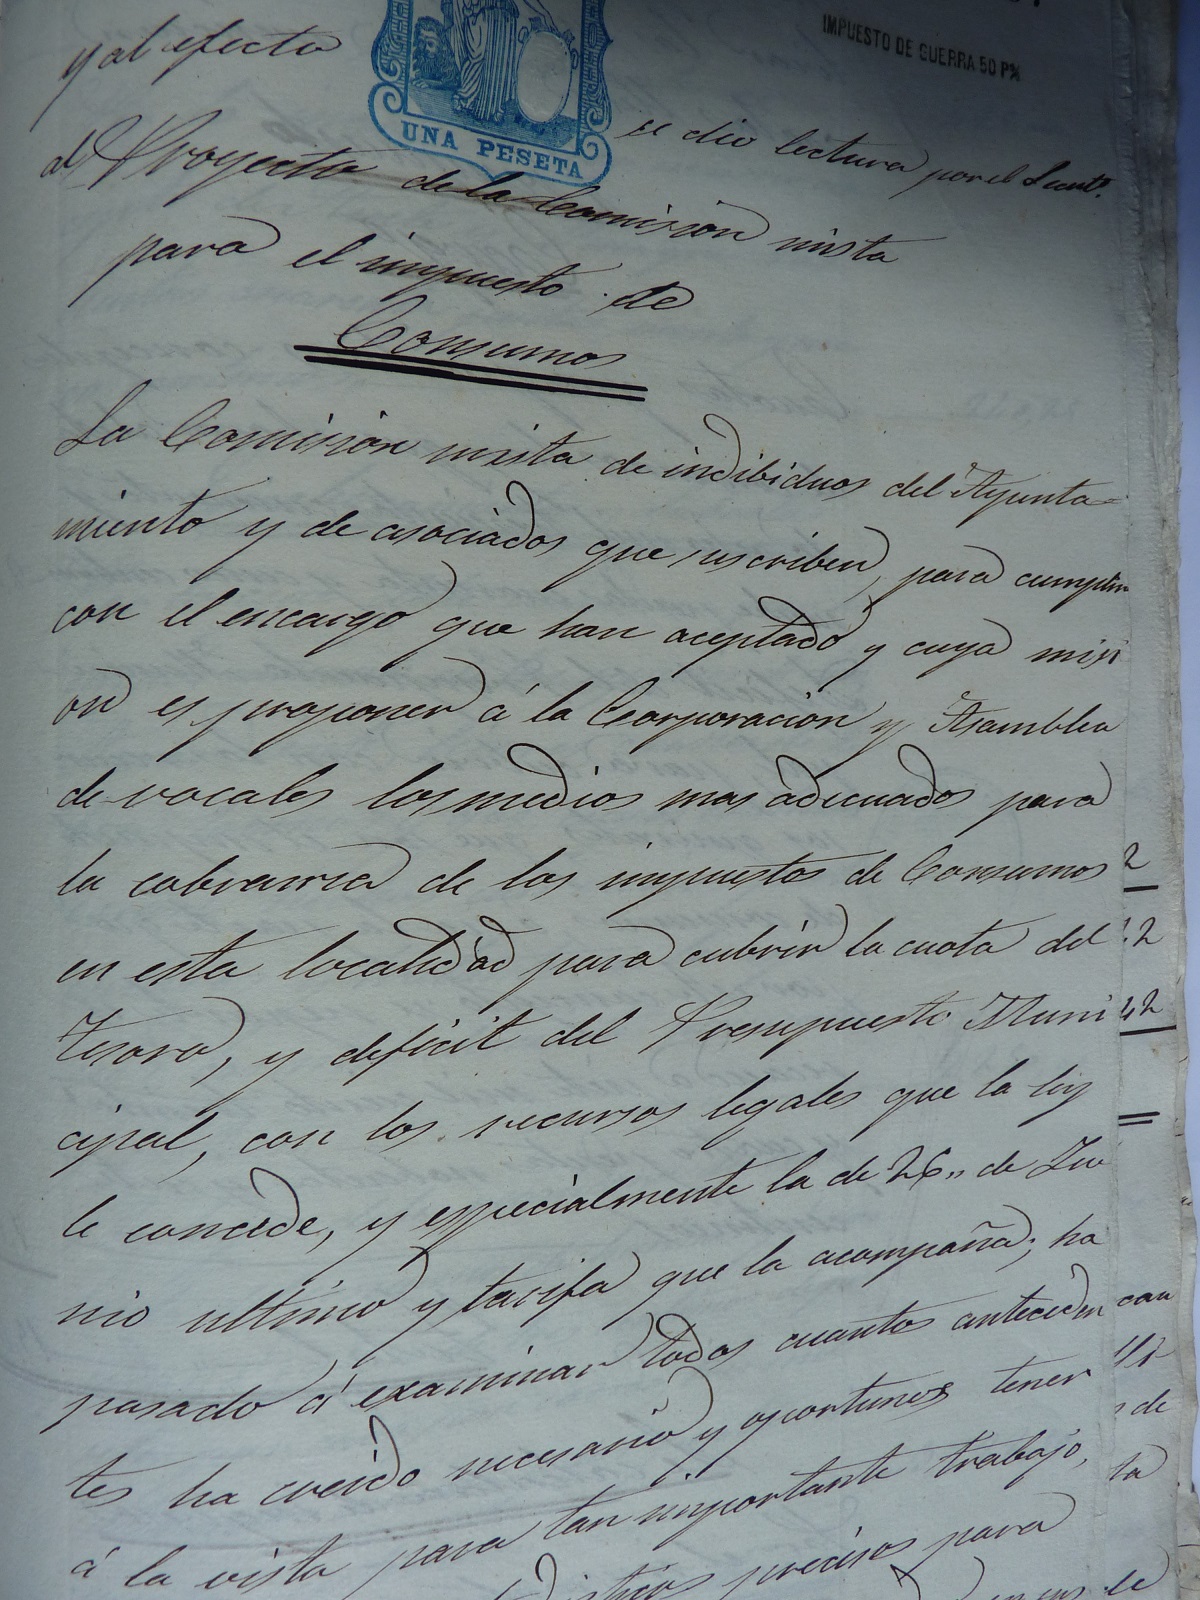 IMPUESTO DE GUERRA 50 P%
y al efecto
UNA PESETA
se dio lectura por el Secretº.
al Proyecto de la Comisión mista
para el impuesto de
Consumos
La Comisión mista de indibiduos del Ayunta-
miento y de asociados que suscriben, para cumplir
con el encargo que han aceptado y cuya misi
on es proponer á la Corporacion y Asamblea
de vocales los medios mas adecuados para
la cobranza de los impuestos de Consumos
en esta localidad para cubrir la cuota del
Tesoro, y deficit del Presupuesto Muni
cipal, con los recursos legales que la ley
le concede, y especialmente la de 26,, de Ju
nio ultimo y tarifa que la acompaña; ha
pasado á examinar todos cuantos anteceden
tes ha creido necesario y oportunos tener
á la vista para tan importante trabajo,
precisos para